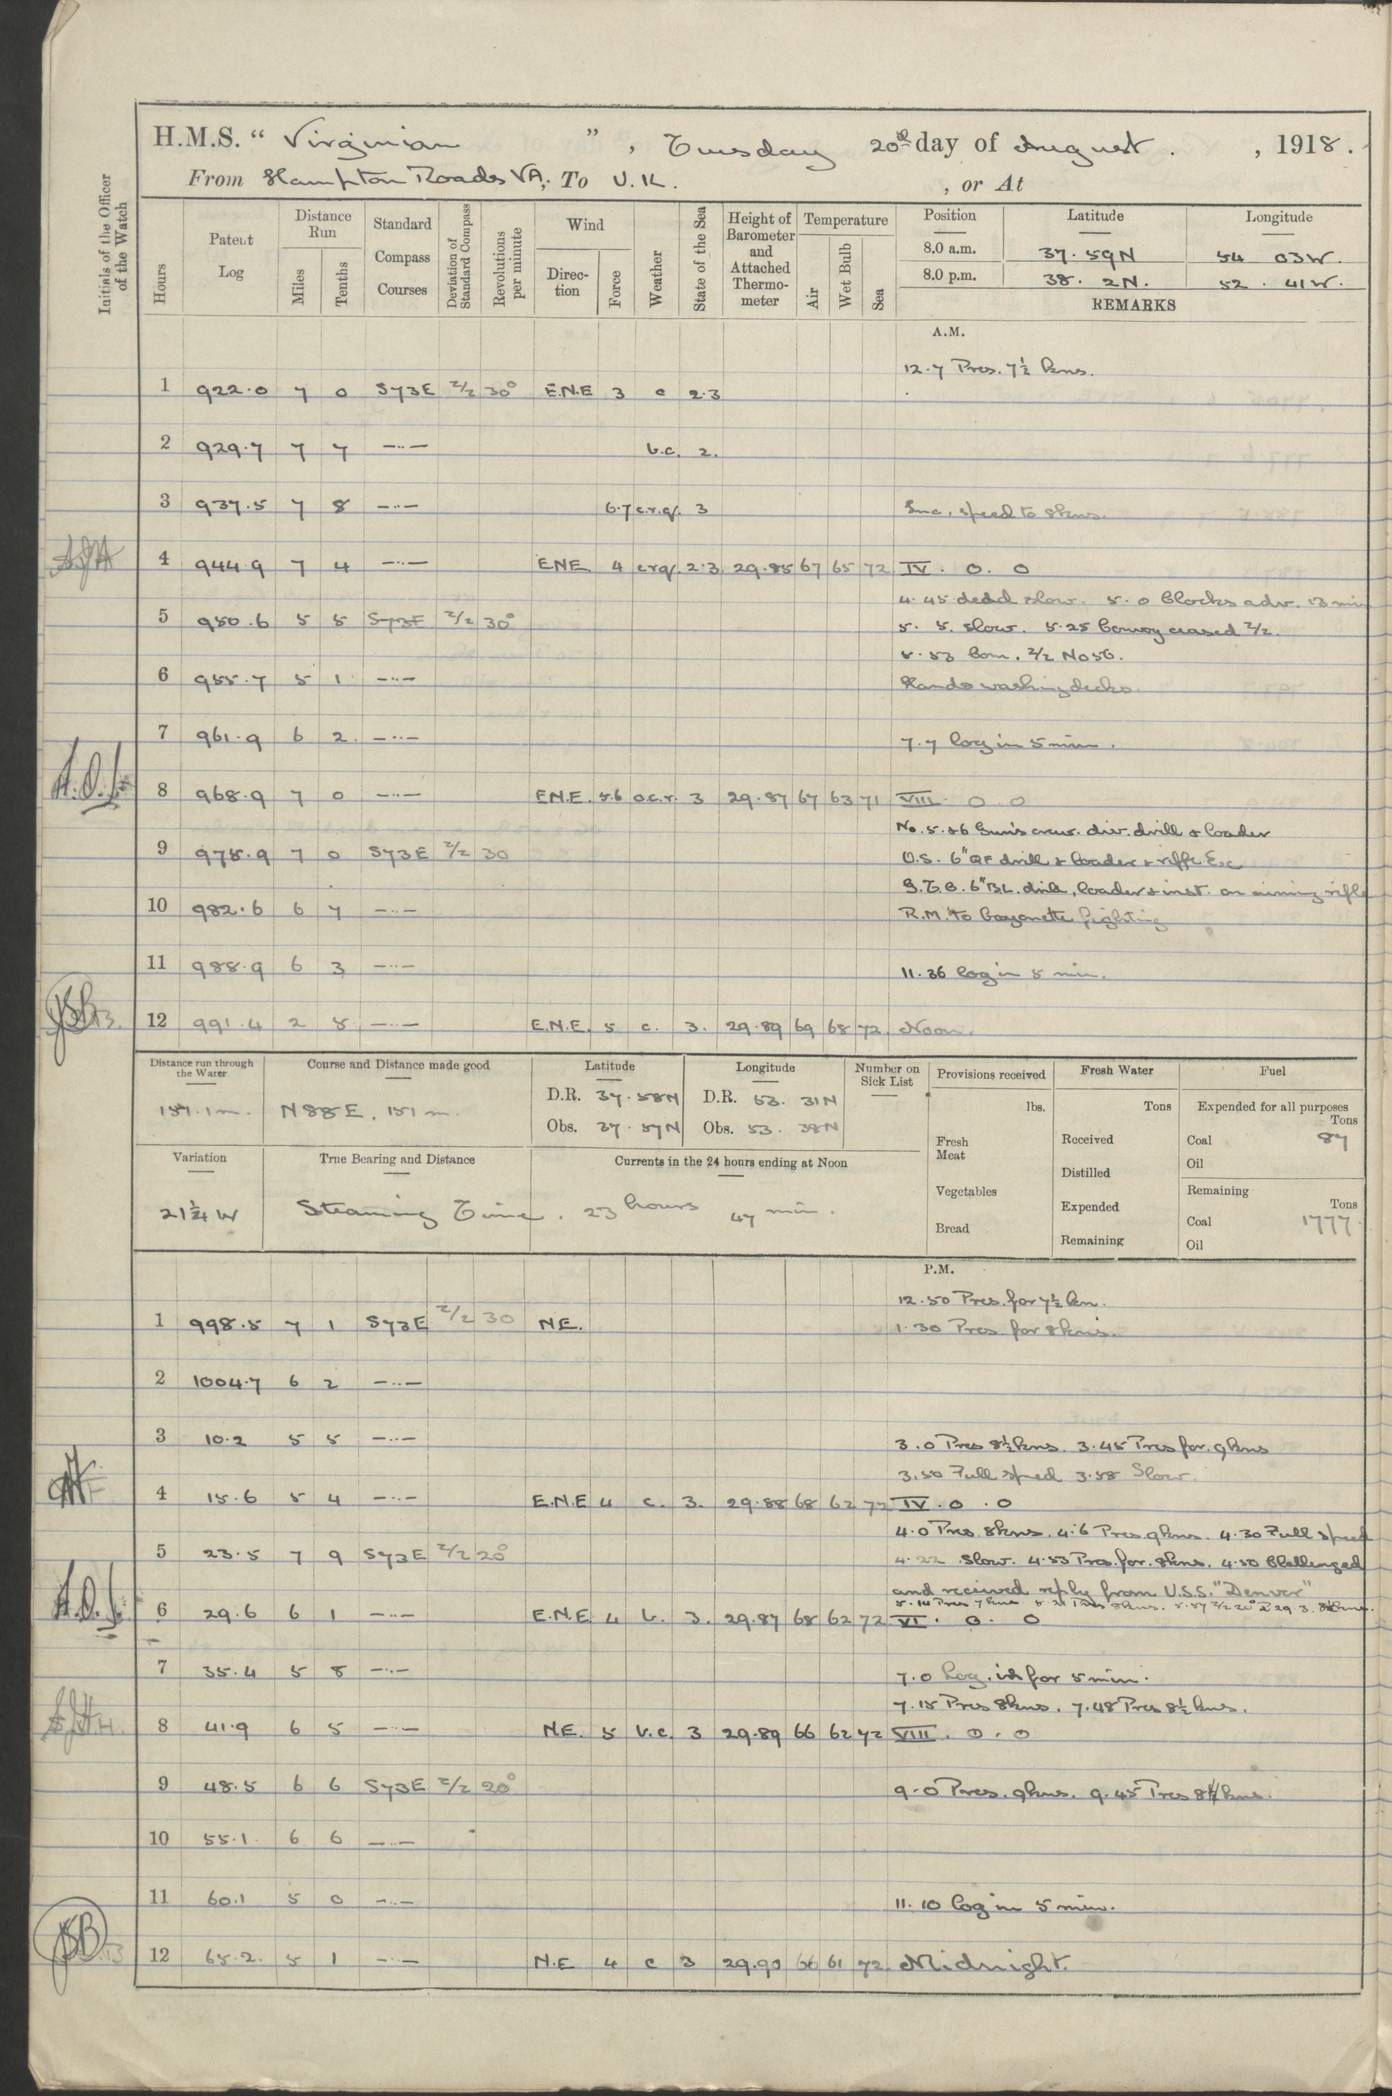 H.M.S. “ Virginian ” , Tuesday 20th day of August . , 1918.
From Hampton Roads VA, To U.K. , or At
Initials of the Officer of the Watch
Hours Patent Log Distance Run Miles Tenths Standard Compass Courses Deviation of Standard Compass Revolutions per minute Wind Direc-tion Force Weather State of the Sea Height of Barometer and Attached Thermo-meter Temperature Air Wet Bulb Sea Position Latitude Longitude
8.0 a.m. 37. 59N 54 03W.
8.0 p.m. 38. 2N. 52. 41W.
REMARKS
A.M.
12.7 Pres. 7½ kns.
1 922.0 7 0 S73E Z/2 30° E.N.E 3 c 2.3
2 929.7 7 7 —··— b.c. 2.
3 937.5 7 8 —··— 6.7 c.r.q. 3 Inc. speed to 8kns.
4 944.9 7 4 —··— ENE 4 crq. 2.3 29.85 67 65 72 IV. 0. 0
4.45 dead slow. 5.0 Clocks adv. 13 min
5 950.6 5 5 S73E Z/2 30° 5. 5. slow. 5.25 Convoy ceased Z/2.
5.53 Com. Z/2 No 56.
6 955.7 5 1 —··— Hands washing decks.
7 961.9 6 2. —··— 7.7 log in 5 min.
8 968.9 7 0 —··— E.N.E. 5.6 o.c.r. 3 29.87 67 63 71 VIII. 0 0
No. 5. &6 Gun's crew. div. drill & loader
9 975.9 7 0 S73E Z/2 30 O.S. 6" QF drill & loader & rifle Ex
S.T.C. 6" B.L. drill, loader & inst. on aiming rifle
10 982.6 6 7 —··— R.M. to bayonette fighting
11 988.9 6 3 —··— 11.36 log in 5 min.
12 991.4 2 5 —··— E.N.E. 5 c. 3. 29.89 69 68 72 Noon.
Distance run through the Water Course and Distance made good Latitude Longitude Number on Sick List Provisions received Fresh Water Fuel
157.1 m. N88E. 151 m. D.R. 37.58N D.R. 53. 31N lbs. Tons Expended for all purposes Tons
Obs. 37.57N Obs. 53. 38N Fresh Meat Received Coal 87
Oil
Variation True Bearing and Distance Currents in the 24 hours ending at Noon Distilled
21¼ W Steaming Time. 23 hours 47 min. Vegetables Expended Remaining Tons
Bread Remaining Coal 1777.
Oil
P.M.
12.50 Pres. for 7½ kn.
1 998.5 7 1 S73E Z/2 30 NE. 1.30 Pres for 8kns.
2 1004.7 6 2 —··—
3 10.2 5 5 —··— 3.0 Pres 8½kns. 3.45 Pres for. 9kns
3.50 Full speed 3.58 Slow.
4 15.6 5 4 —··— E.N.E 4 c. 3. 29.88 68 62 72 IV. 0. 0
4.0 Pres 8kns. 4.6 Pres 9kns. 4.30 Full speed
5 23.5 7 9 S73E Z/2 20° 4.22 Slow. 4.53 Pres. for. 8kns. 4.50 Challenged
and received reply from U.S.S. "Denver"
5.10 Pres 7 kns 5.21 Pres 8kns. 5.57 Z/2 20°
6 29.6 6 1 —··— E.N.E 4 b. 3. 29.87 68 62 72 VI. 0. 0
7 35.4 5 8 —··— 7.0 Log. in for 5 min.
7.15 Pres 8kns. 7.48 Pres 8½ kns.
8 41.9 6 5 —··— NE. 5 b.c. 3 29.89 66 62 72 VIII. 0. 0
9 48.5 6 6 S73E Z/2 20° 9.0 Pres. 9kns. 9.45 Pres 8½kns.
10 55.1 6 6 —··—
11 60.1 5 0 —··— 11.10 log in 5 min.
12 65.2. 5 1 —··— N.E 4 c 3 29.90 66 61 72 Midnight.